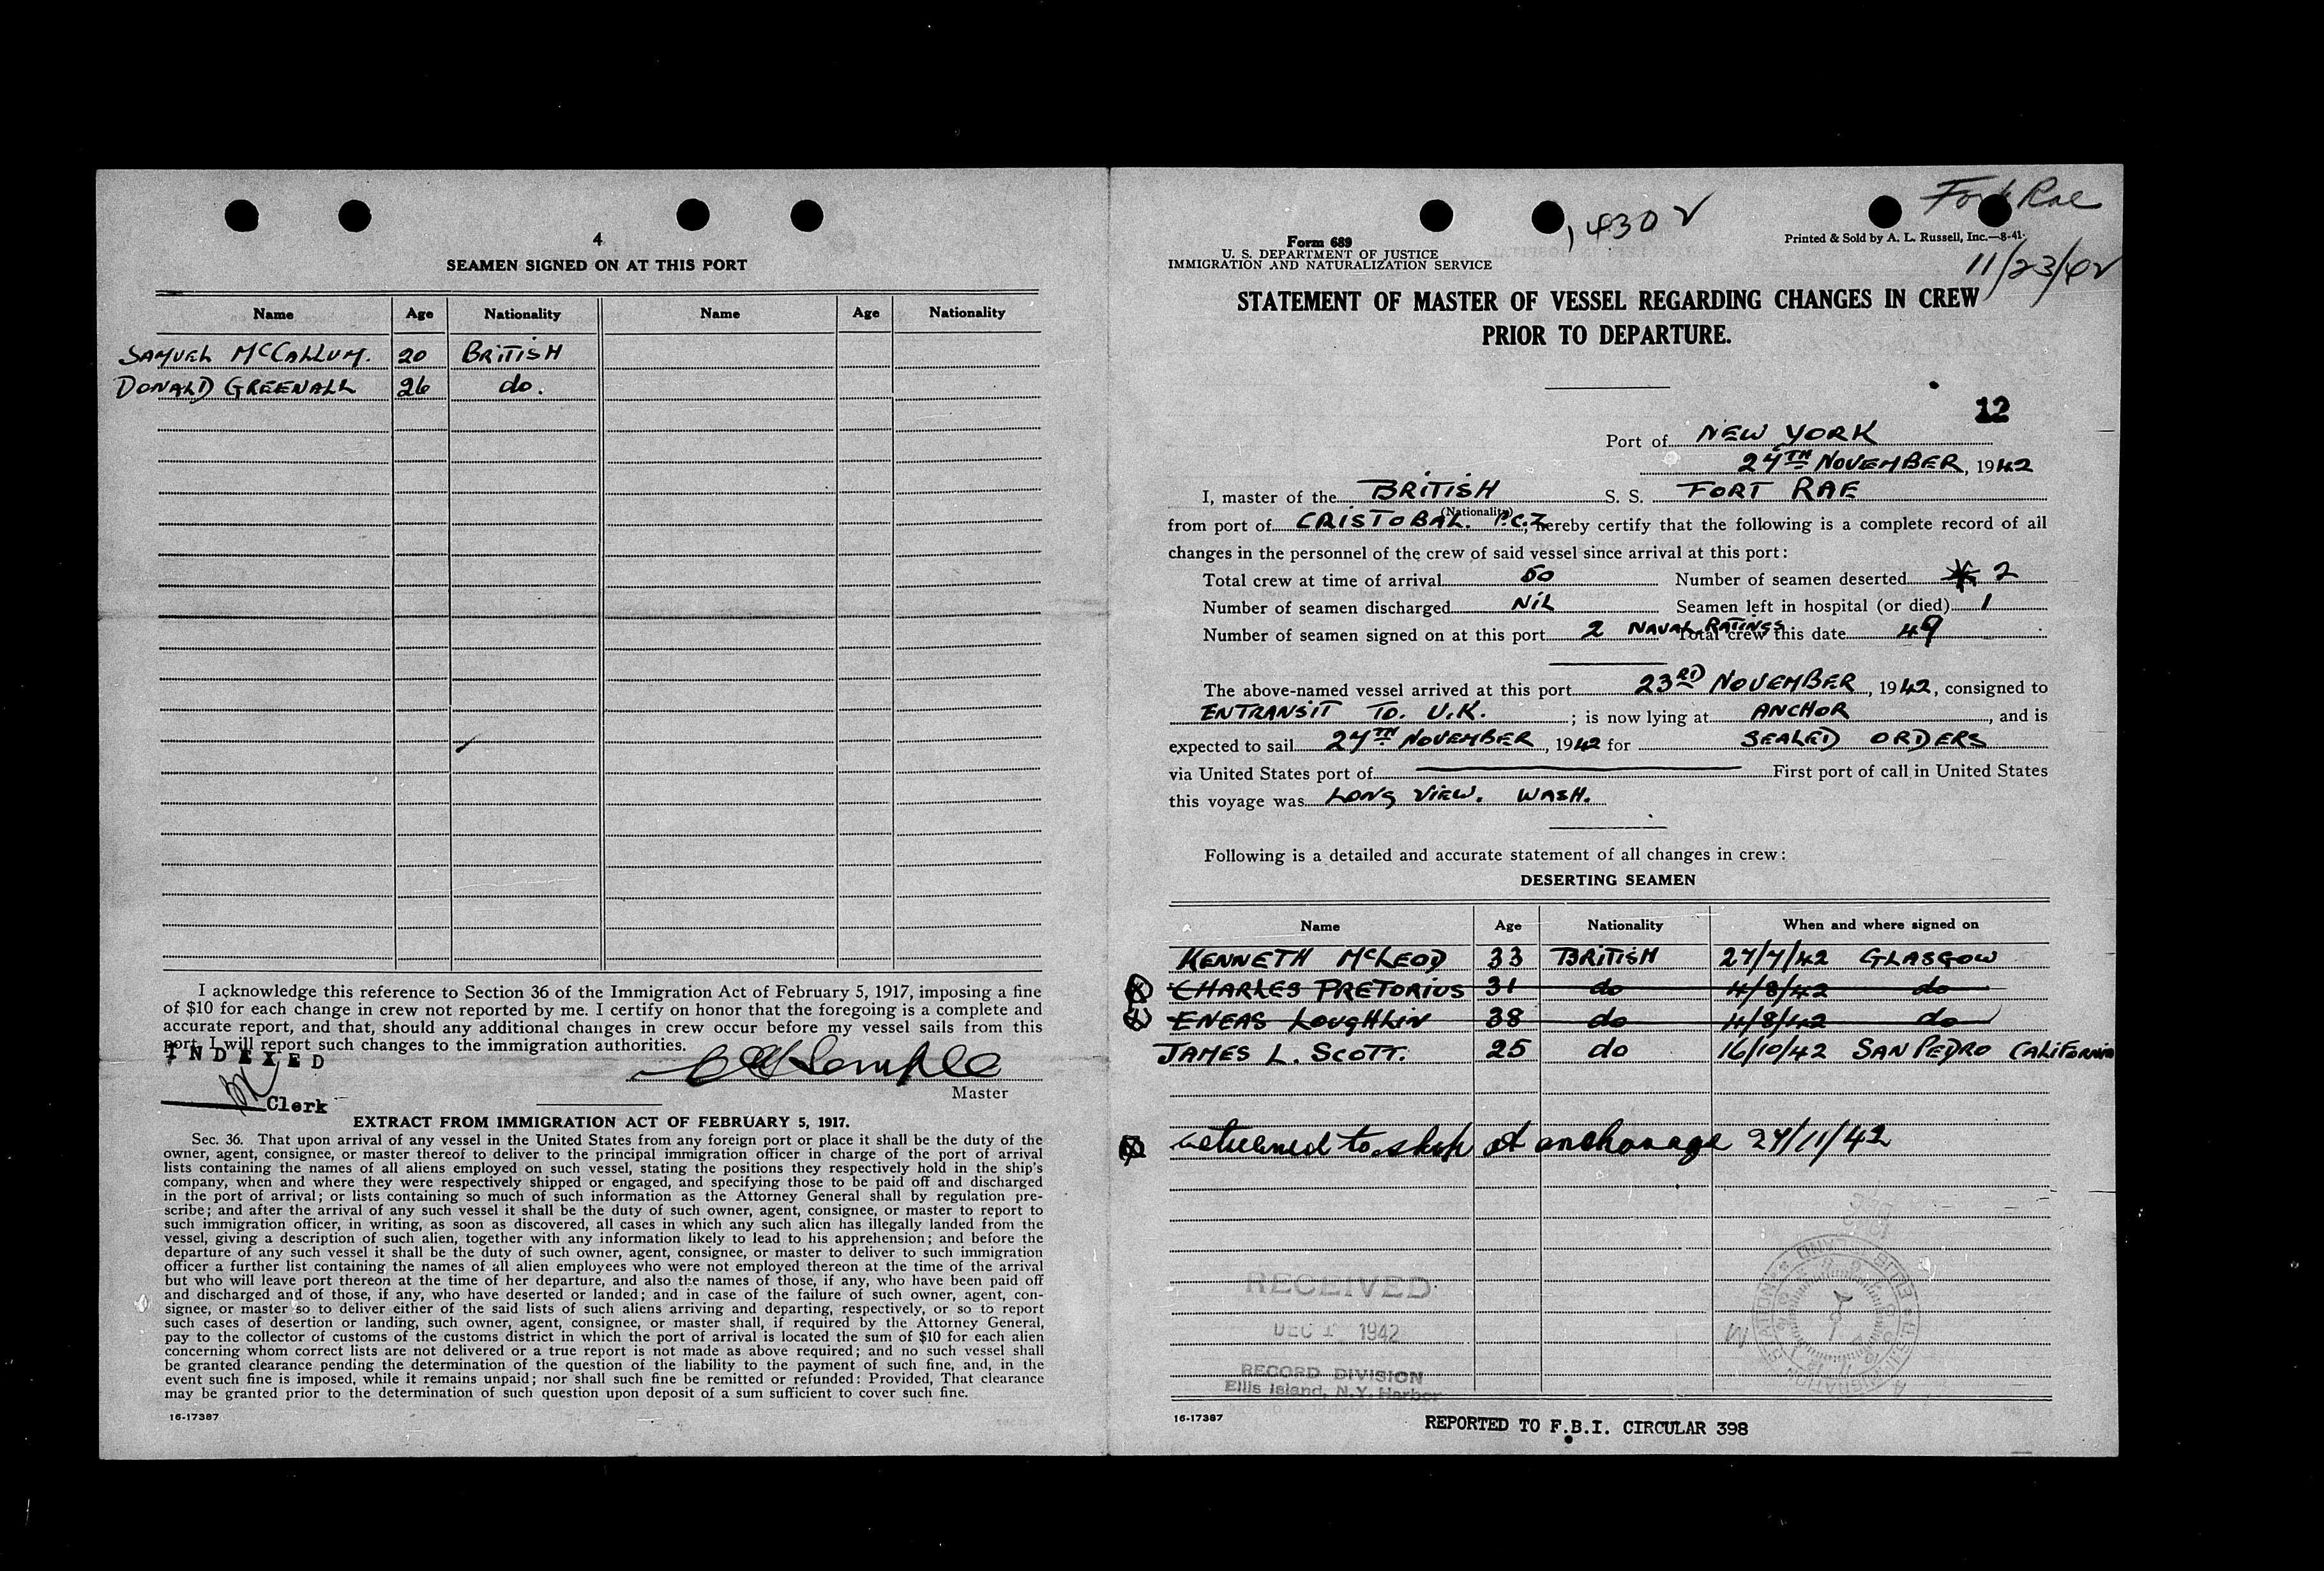 4
SEAMEN SIGNED ON AT THIS PORT
Name Age Nationality Name Age Nationality
SAMUEL McCALLUM. 20 BRITISH
DONALD GREENALL 26 do.
I acknowledge this reference to Section 36 of the Immigration Act of February 5, 1917, imposing a fine
of $10 for each change in crew not reported by me. I certify on honor that the foregoing is a complete and
accurate report, and that, should any additional changes in crew occur before my vessel sails from this
port, I will report such changes to the immigration authorities.
INDEXED
Clerk
Master
EXTRACT FROM IMMIGRATION ACT OF FEBRUARY 5, 1917.
Sec. 36. That upon arrival of any vessel in the United States from any foreign port or place it shall be the duty of the
owner, agent, consignee, or master thereof to deliver to the principal immigration officer in charge of the port of arrival
lists containing the names of all aliens employed on such vessel, stating the positions they respectively hold in the ship's
company, when and where they were respectively shipped or engaged, and specifying those to be paid off and discharged
in the port of arrival; or lists containing so much of such information as the Attorney General shall by regulation pre-
scribe; and after the arrival of any such vessel it shall be the duty of such owner, agent, consignee, or master to report to
such immigration officer, in writing, as soon as discovered, all cases in which any such alien has illegally landed from the
vessel, giving a description of such alien, together with any information likely to lead to his apprehension; and before the
departure of any such vessel it shall be the duty of such owner, agent, consignee, or master to deliver to such immigration
officer a further list containing the names of all alien employees who were not employed thereon at the time of the arrival
but who will leave port thereon at the time of her departure, and also the names of those, if any, who have been paid off
and discharged and of those, if any, who have deserted or landed; and in case of the failure of such owner, agent, con-
signee, or master so to deliver either of the said lists of such aliens arriving and departing, respectively, or so to report
such cases of desertion or landing, such owner, agent, consignee, or master shall, if required by the Attorney General,
pay to the collector of customs of the customs district in which the port of arrival is located the sum of $10 for each alien
concerning whom correct lists are not delivered or a true report is not made as above required; and no such vessel shall
be granted clearance pending the determination of the question of the liability to the payment of such fine, and, in the
event such fine is imposed, while it remains unpaid; nor shall such fine be remitted or refunded: Provided, That clearance
may be granted prior to the determination of such question upon deposit of a sum sufficient to cover such fine.
16-17387
Fort Rae
430
Form 689
U. S. DEPARTMENT OF JUSTICE
IMMIGRATION AND NATURALIZATION SERVICE
Printed & Sold by A. L. Russell, Inc.—8-41.
11/23/42
STATEMENT OF MASTER OF VESSEL REGARDING CHANGES IN CREW
PRIOR TO DEPARTURE.
12
Port of NEW YORK
24TH NOVEMBER, 1942
I, master of the BRITISH S. S. FORT RAE
(Nationality)
from port of CRISTOBAL. P.C.Z, hereby certify that the following is a complete record of all
changes in the personnel of the crew of said vessel since arrival at this port:
Total crew at time of arrival 50 Number of seamen deserted 2
Number of seamen discharged NIL Seamen left in hospital (or died) 1
Number of seamen signed on at this port 2 NAVAL RATINGS Total crew this date 49
The above-named vessel arrived at this port 23RD NOVEMBER, 1942, consigned to
ENTRANSIT TO. U.K. ; is now lying at ANCHOR, and is
expected to sail 24TH NOVEMBER, 1942 for SEALED ORDERS
via United States port of First port of call in United States
this voyage was LONG VIEW. WASH.
Following is a detailed and accurate statement of all changes in crew:
DESERTING SEAMEN
Name Age Nationality When and where signed on
KENNETH McLEOD 33 BRITISH 27/7/42 GLASGOW
CHARLES PRETORIUS 31 do 4/8/42 do
ENEAS LOUGHLIN 38 do 4/8/42 do
JAMES L. SCOTT. 25 do 16/10/42 SAN PEDRO CALIFORNIA
returned to ship at anchorage 24/11/42
RECEIVED
DEC 1 1942
RECORD DIVISION
Ellis Island, N.Y. Harbor
16-17387
REPORTED TO F.B.I. CIRCULAR 398